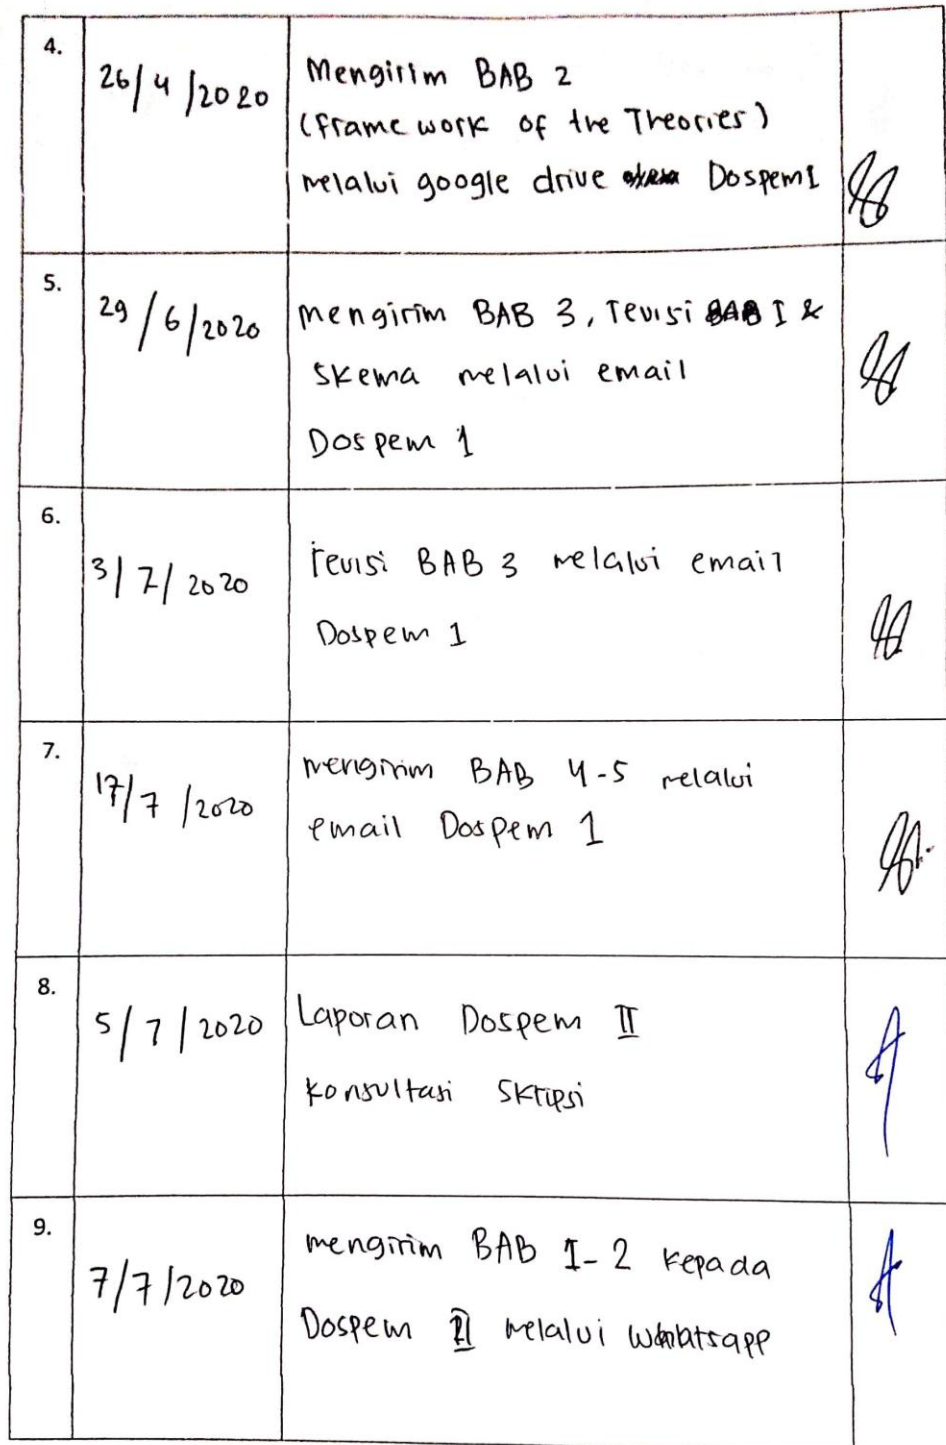 4.
26/4/2020
Mengirim BAB 2
(Frame work of the Theories)
melalui google drive Dospem1
5.
29/6/2020
mengirim BAB 3, revisi BAB I &
Skema melalui email
Dospem 1
6.
3/7/2020
revisi BAB 3 melalui email
Dospem 1
7.
17/7/2020
mengirim BAB 4-5 melalui
email Dospem 1
8.
5/7/2020
Laporan Dospem II
konsultasi Skripsi
9.
7/7/2020
mengirim BAB I-2 kepada
Dospem II melalui whatsapp